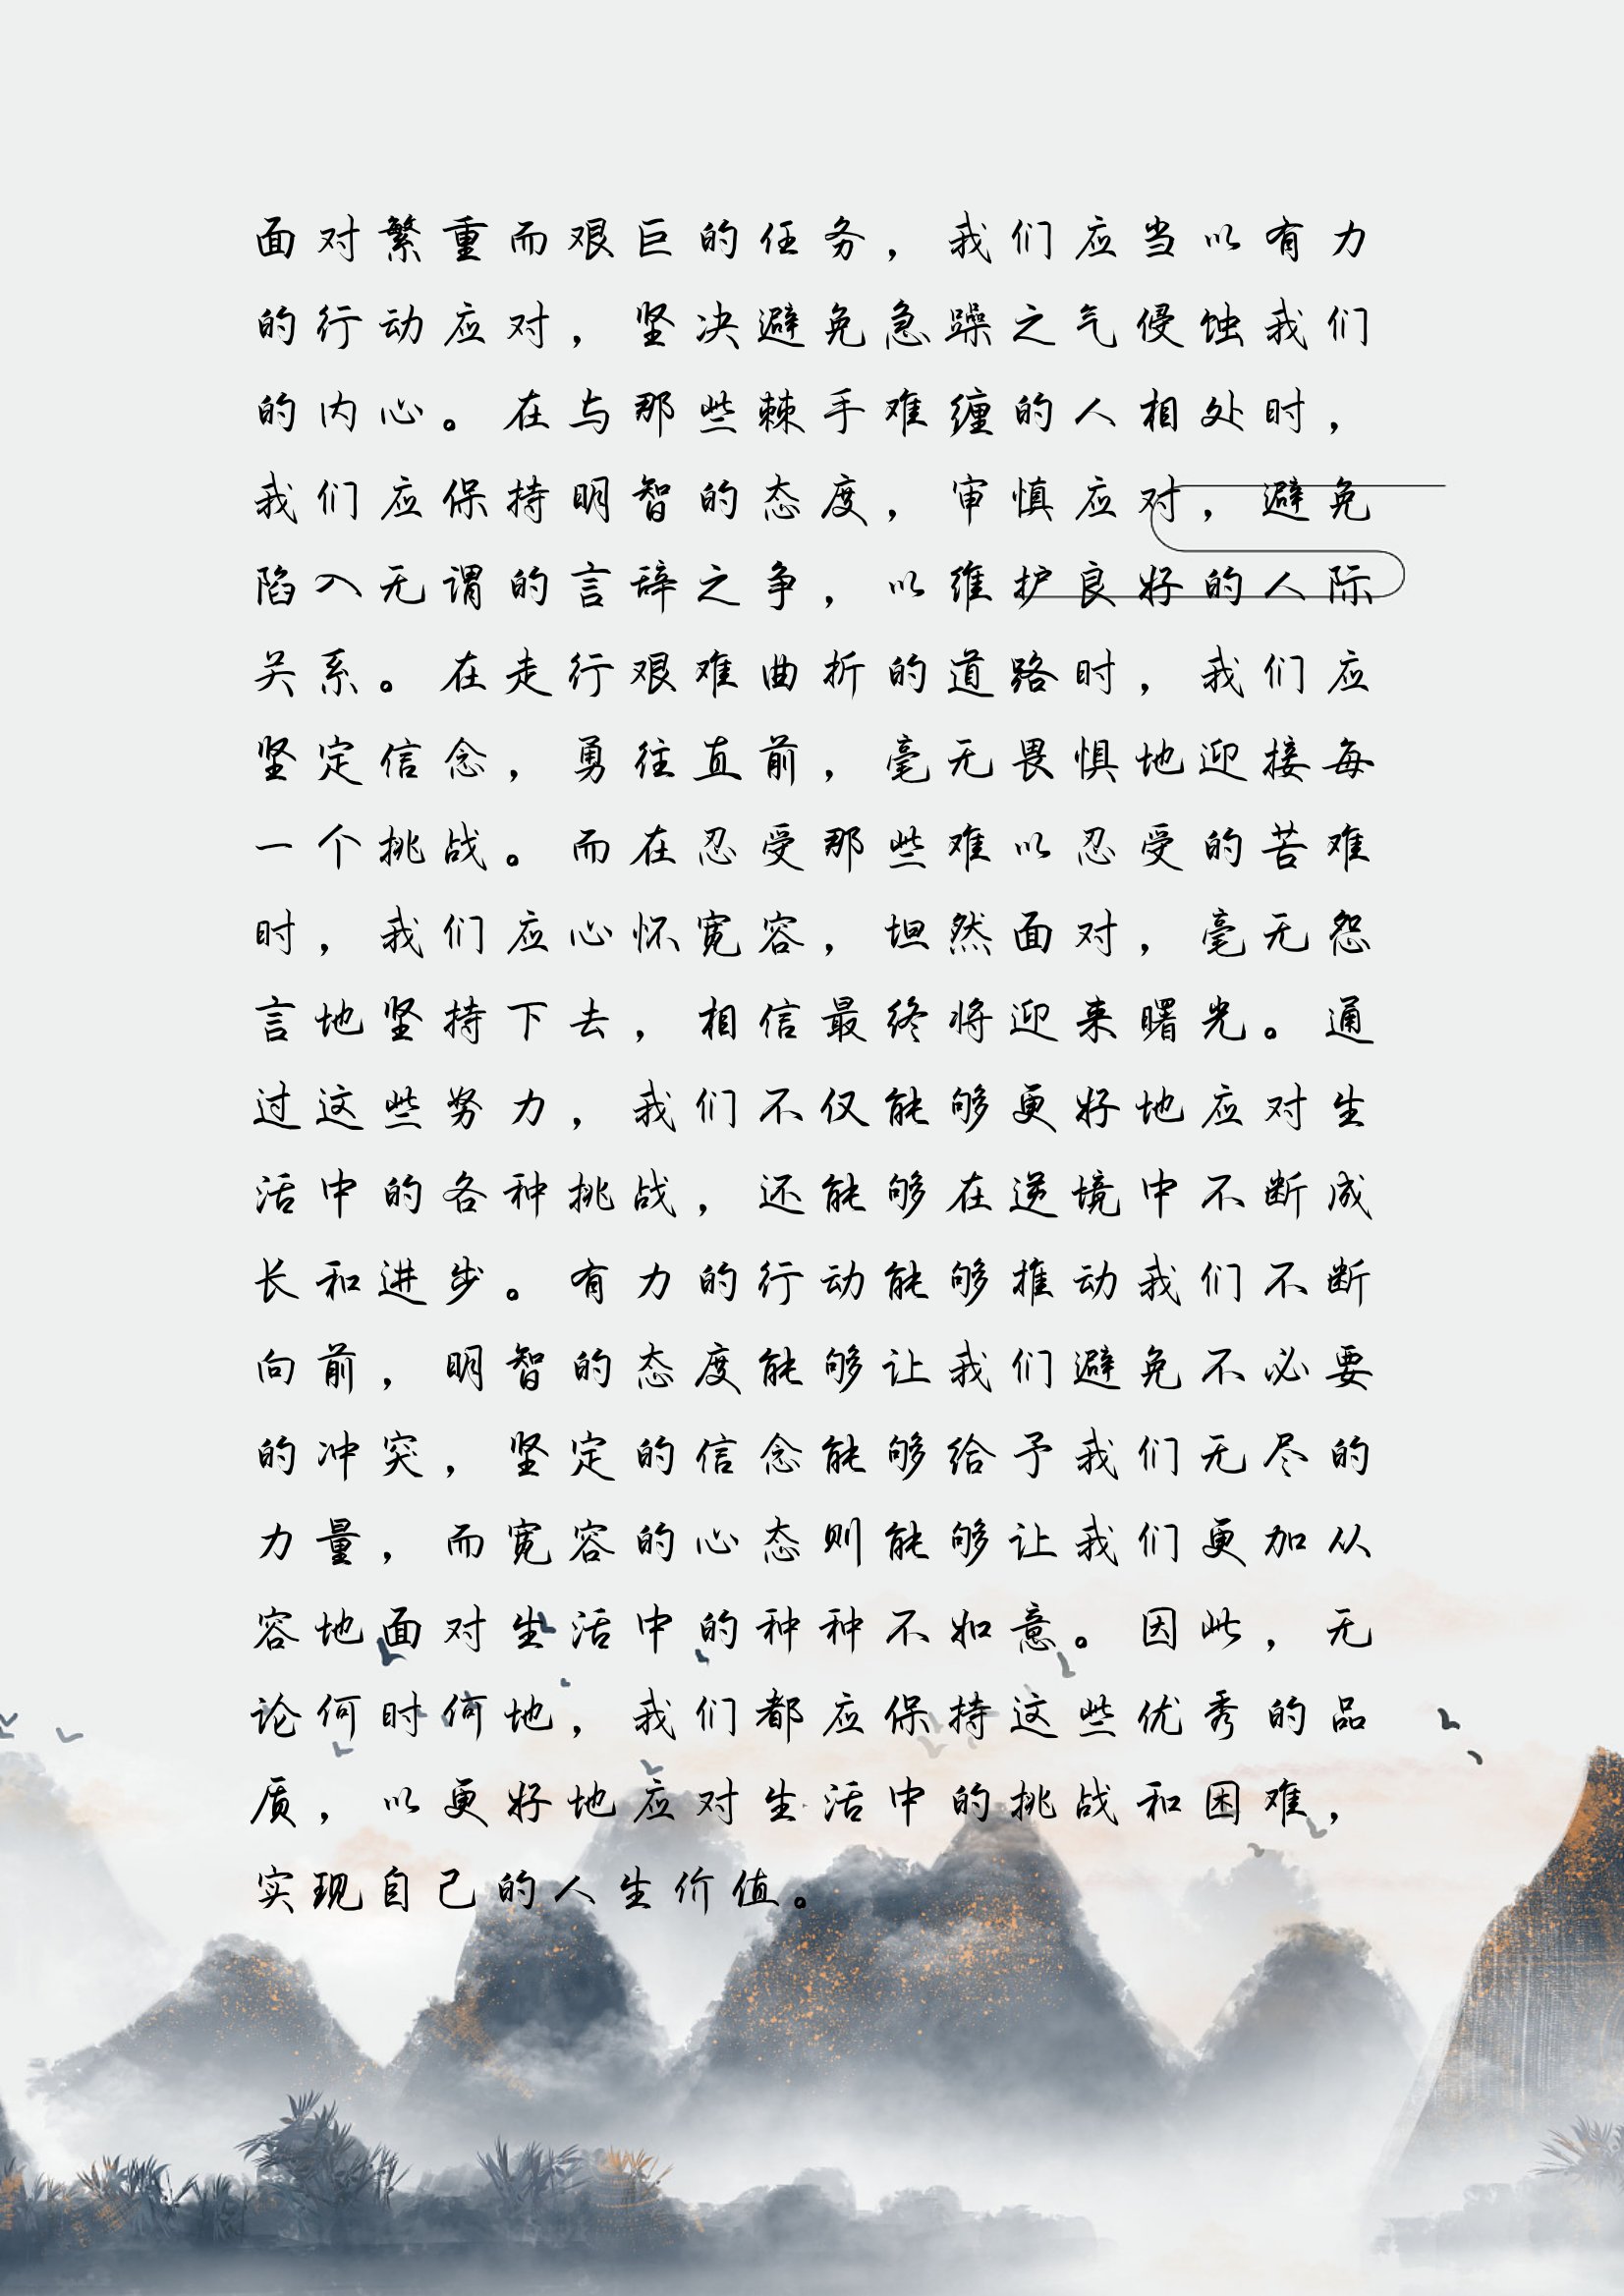 面对繁重而艰巨的任务，我们应当以有力
的行动应对，坚决避免急躁之气侵蚀我们
的内心。在与那些棘手难缠的人相处时，
我们应保持明智的态度，审慎应对，避免
陷入无谓的言辞之争，以维护良好的人际
关系。在走行艰难曲折的道路时，我们应
坚定信念，勇往直前，毫无畏惧地迎接每
一个挑战。而在忍受那些难以忍受的苦难
时，我们应心怀宽容，坦然面对，毫无怨
言地坚持下去，相信最终将迎来曙光。通
过这些努力，我们不仅能够更好地应对生
活中的各种挑战，还能够在逆境中不断成
长和进步。有力的行动能够推动我们不断
向前，明智的态度能够让我们避免不必要
的冲突，坚定的信念能够给予我们无尽的
力量，而宽容的心态则能够让我们更加从
容地面对生活中的种种不如意。因此，无
论何时何地，我们都应保持这些优秀的品
质，以更好地应对生活中的挑战和困难，
实现自己的人生价值。